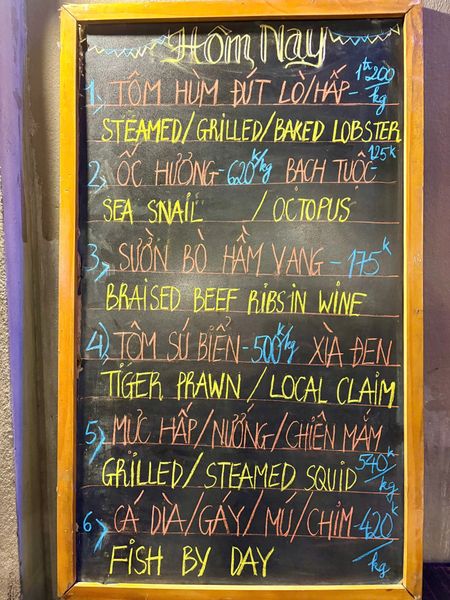 Hôm Nay
1, TÔM HÙM ĐÚT LÒ/HẤP - 1tr200/kg
STEAMED/GRILLED/BAKED LOBSTER
2, ỐC HƯƠNG - 620k/kg BẠCH TUỘC - 125k
SEA SNAIL / OCTOPUS
3, SƯỜN BÒ HẦM VANG - 175k
BRAISED BEEF RIBS IN WINE
4) TÔM SÚ BIỂN - 500k/kg XÌA ĐEN
TIGER PRAWN / LOCAL CLAIM
5, MỰC HẤP/NƯỚNG/CHIÊN MẮM
GRILLED/STEAMED SQUID 540k/kg
6, CÁ DÌA/GÁY/MÚ/CHIM - 420k/kg
FISH BY DAY